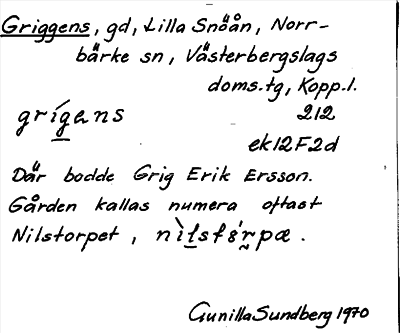 Griggens, gd, Lilla Snöån, Norr-
bärke sn, Västerbergslags
doms.tg, Kopp.l.
grígens 212
ek12F2d
Där bodde Grig Erik Ersson.
Gården kallas numera oftast
Nilstorpet,
Gunilla Sundberg 1970